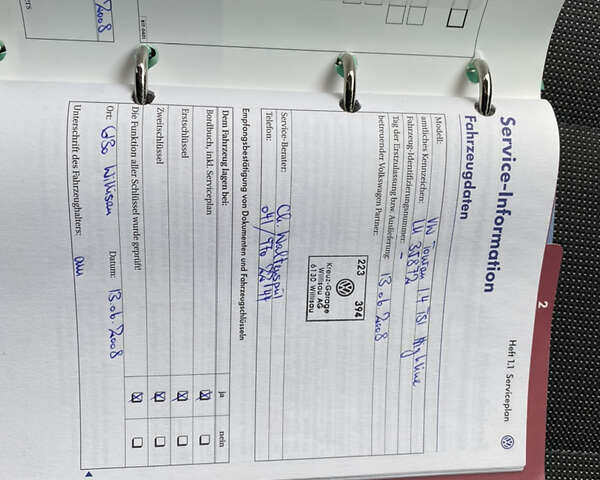 2008
Service-Information
Heft 1.1 Serviceplan
Fahrzeugdaten
Modell: VW Touran 1.4 TSI Highline
amtliches Kennzeichen: LU 35872
Fahrzeug-Identifizierungsnummer: -
Tag der Erstzulassung bzw. Auslieferung: 13.06.2008
betreuender Volkswagen Partner:
223 394
Kreuz-Garage
Willisau AG
6130 Willisau
Service-Berater:
Telefon: 041/970
Empfangsbestätigung von Dokumenten und Fahrzeugschlüsseln
Dem Fahrzeug lagen bei: ja nein
Bordbuch, inkl. Serviceplan
Erstschlüssel
Zweitschlüssel
Die Funktion aller Schlüssel wurde geprüft
Ort: 6130 Willisau Datum: 13.06.2008
Unterschrift des Fahrzeughalters:
2